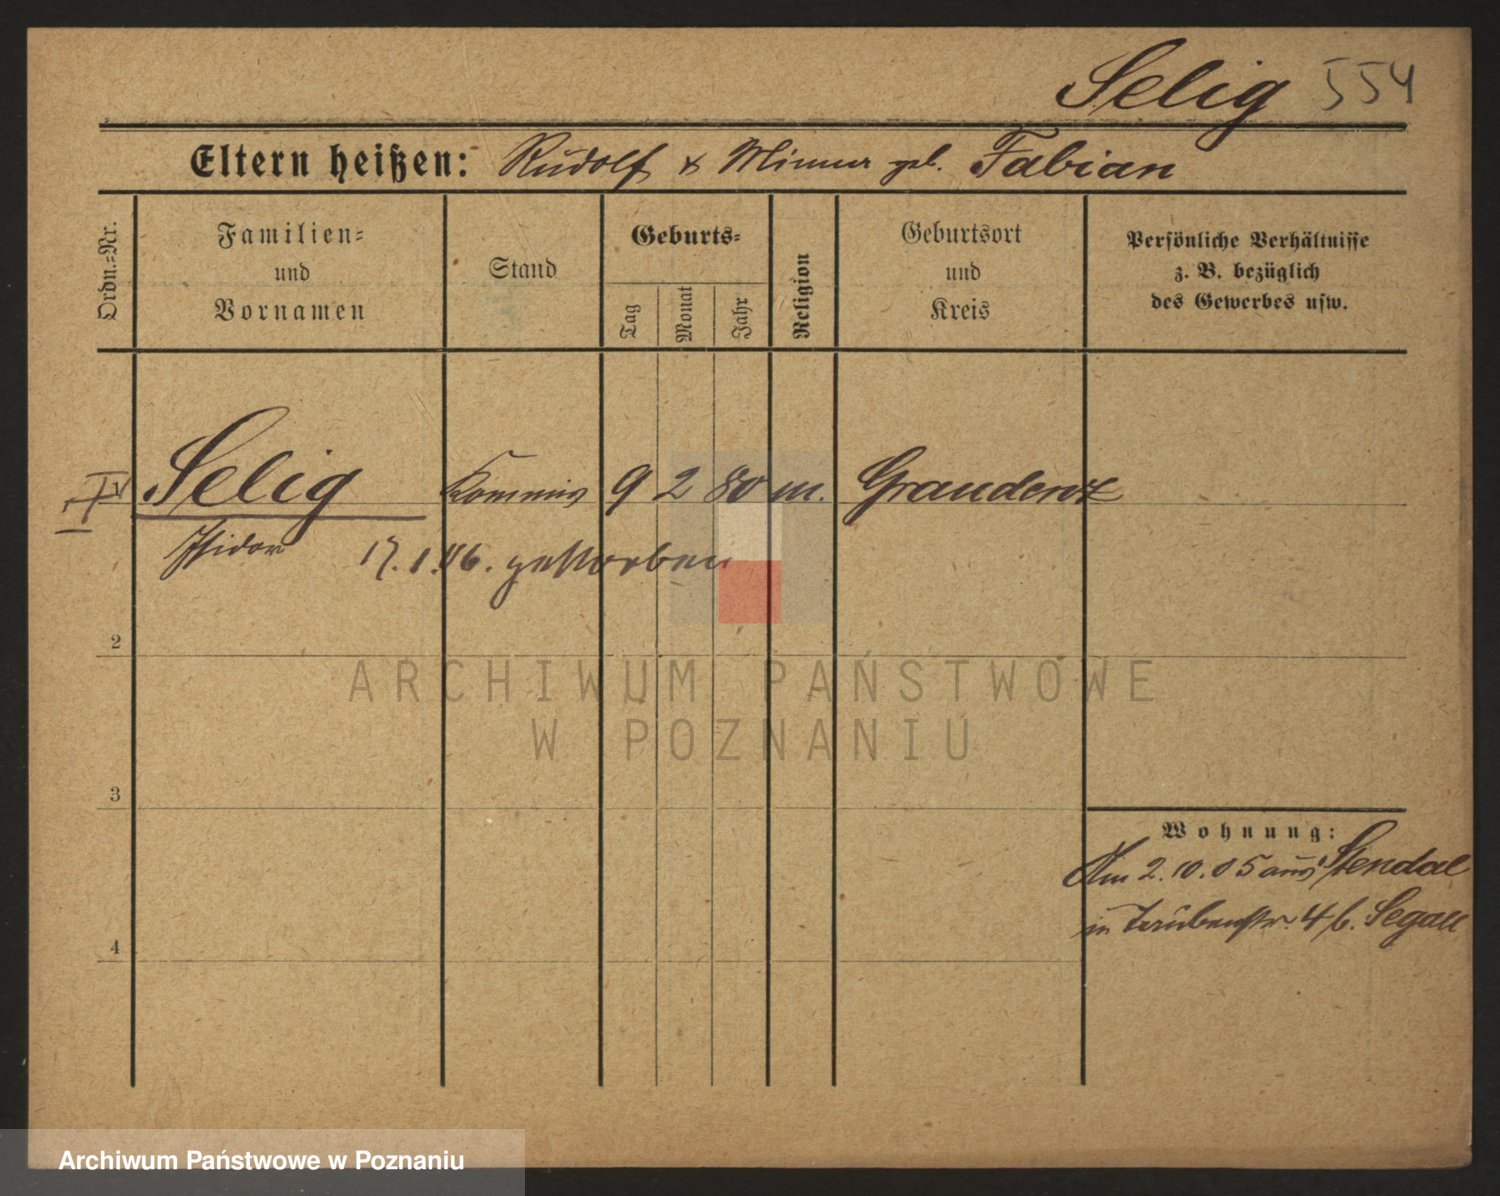 Selig 554
Eltern heißen: Rudolf & Minna geb. Fabian
Ordn.=Nr.
Familien=
und
Vornamen
Stand
Geburts=
Tag
Monat
Jahr
Religion
Geburtsort
und
Kreis
Persönliche Verhältnisse
z. B. bezüglich
des Gewerbes usw.
Selig Kommis 9 2 80 m. Graudenz
Isidor 17.1.06. gestorben
2
3
4
Wohnung:
Am 2.10.05 aus Stendal
in 4 b. Segall
ARCHIWUM PAŃSTWOWE
W POZNANIU
Archiwum Państwowe w Poznaniu